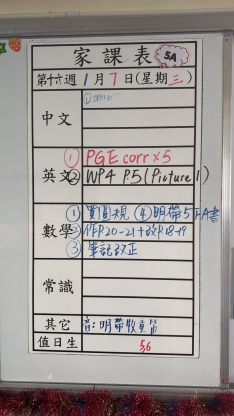 家課表 5A
第十六週 1月7日(星期三)
中文
①
英文 ① PGE corr x5
② WP4 P.5 (Picture 1)
數學 ① 買圓規 ④ 明帶5下A書
② 作P.20-21+改P.18-19
③ 筆記改正
常識
其它 音:明帶牧童笛
值日生 5,6